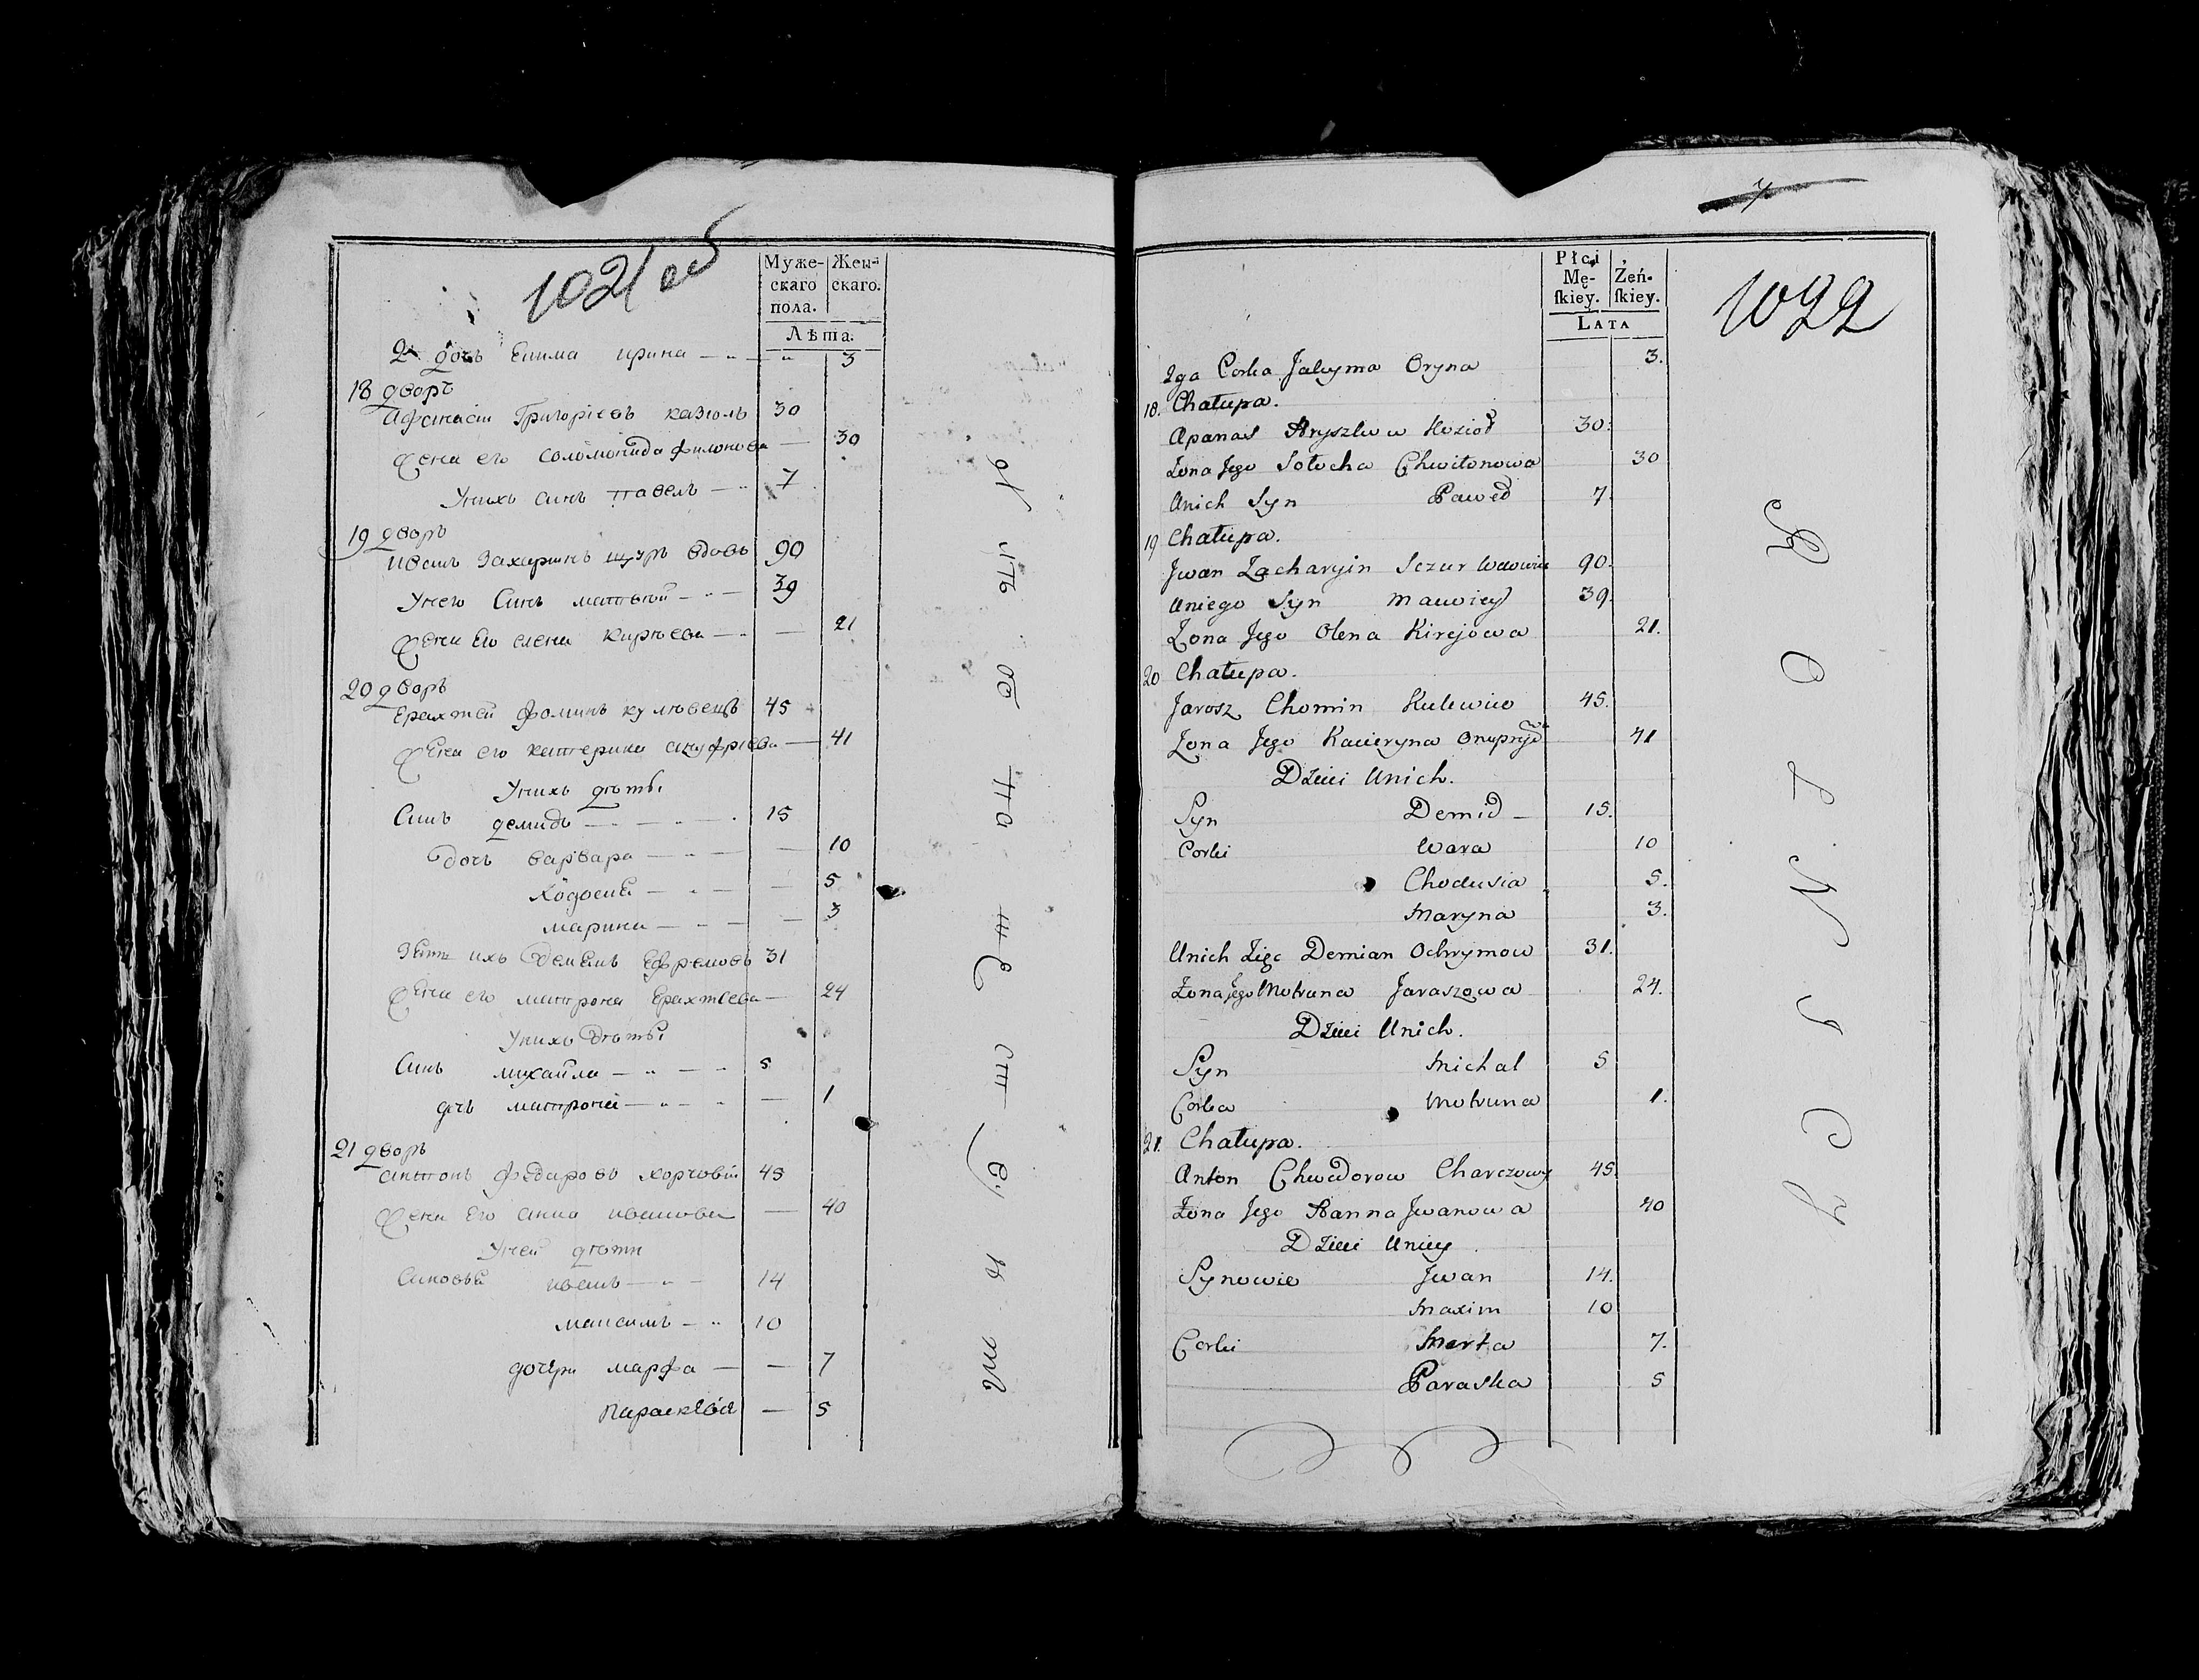 1021 об
Муже-
скаго
пола.
Жен-
скаго.
Лѣта.
2я дочь Екима ирина — „ — „ 3
18 дворъ
Афанасіи Григоріевъ казюлъ 30
Жена его соломонида филонова — 30
Унихъ синъ павелъ — „ 7
19 дворъ
иванъ Захаринъ щуръ вдовъ 90
Унего Синъ матвѣй — „ — 39
Жена Его елена Кирѣева — „ — 21
20 дворъ
Ерахтей фоминъ кулювецъ 45
Жена его катерина ануфріева — 41
Унихъ дѣты
Синъ демидъ — „ — „ 15
дочь варвара — „ — — 10
Ходосья — „ — — 5
марина — „ — — 3
Зять ихъ демянъ Ефремовъ 31
Жена его матрона Ерахтѣева — 24
Унихъ дѣты
Синъ михайла — „ — „ 5
дочь матрона — „ — „ — 1
21 дворъ
антонъ федаровъ харчовій 45
Жена Его анна иванова — 40
Уней дѣти
Синовья иванъ — „ — 14
максимъ — „ 10
дочери марфа — — 7
Параскевия — 5
Płci
Mę-
ſkiey.
Żeń-
ſkiey.
LATA
1022
2ga Corka Jakyma Oryna 3.
18. Chałupa.
Apanas Hryszkow Kozioł 30.
Zona Jego Sołocha Chwiłonowa 30
Unich Syn Paweł 7.
19 Chałupa.
Jwan Zacharyin Sczur Wdowiec 90.
Uniego Syn Mawiey 39.
Zona Jego Olena Kirejowa 21.
20 Chałupa.
Jarosz Chomin Kulewiec 45.
Zona Jego Kateryna Onupryiowa 41
Dzieci Unich.
Syn Demid — 15.
Corki Wara 10
Chodusia 5.
Maryna 3.
Unich Zięc Demian Ochrymow 31.
Zona Jego Motruna Jaraszowa 24.
Dzieci Unich.
Syn Michal 5
Corka Motruna 1.
21. Chałupa.
Anton Chwedorow Charczowy 45.
Zona Jego Hanna Jwanowa 40
Dzieci Uniey
Synowie Jwan 14.
Maxim 10
Corki Marta 7.
Paraska 5
R O L N I C Y